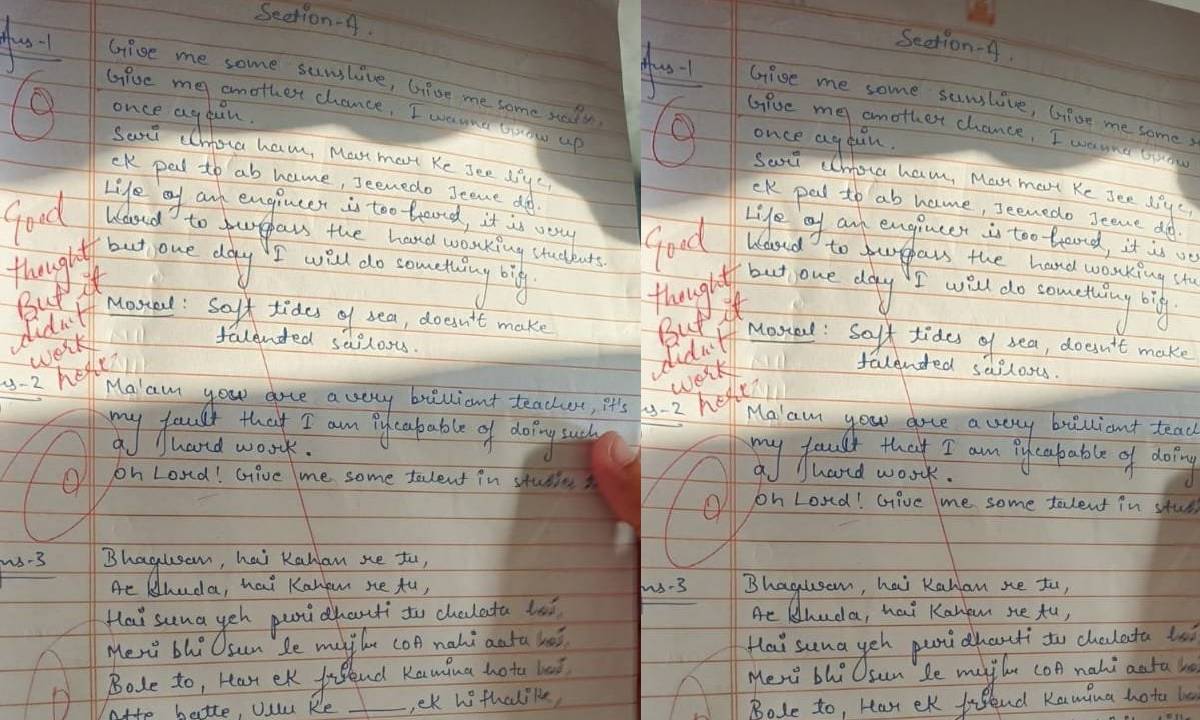 Section-A.
Ans-1
Give me some sunshine, Give me some rain,
Give me another chance, I wanna Grow up
once again.
0
Sari umra ham, Mar mar Ke Jee liye,
ek pal to ab hame, Jeenedo Jeene do.
Life of an engineer is too hard, it is very
hard to surpass the hard working students.
but one day I will do something big.
Good
thought
But it
didn't
work
here.
Moral: Soft tides of sea, doesn't make
talented sailors.
Ans-2
Ma'am you are a very brilliant teacher, it's
my fault that I am incapable of doing such
a hard work.
Oh Lord! Give me some talent in studies
0
Ans-3
Bhagwan, hai Kahan re tu,
Ae Khuda, hai Kahan re tu,
Hai suna yeh puri dharti tu chalata hai,
Meri bhi sun le mujhe COA nahi aata hai,
Bole to, Har ek friend Kamina hota hai,
ullu Ke ___, ek hi thalike,
0
Section-A.
Ans-1
Give me some sunshine, Give me some
Give me another chance, I wanna Grow
once again.
0
Sari umra ham, Mar mar Ke Jee liye,
ek pal to ab hame, Jeenedo Jeene do.
Life of an engineer is too hard, it is ve
hard to surpass the hard working stu
but one day I will do something big.
Good
thought
But it
didn't
work
here.
Moral: Soft tides of sea, doesn't make
talented sailors.
ns-2
Ma'am you are a very brilliant teac
my fault that I am incapable of doing
a hard work.
Oh Lord! Give me some talent in stud
0
ns-3
Bhagwan, hai Kahan re tu,
Ae Khuda, hai Kahan re tu,
Hai suna yeh puri dharti tu chalata hai
Meri bhi sun le mujhe COA nahi aata hai
Bole to, Har ek friend Kamina hota hai